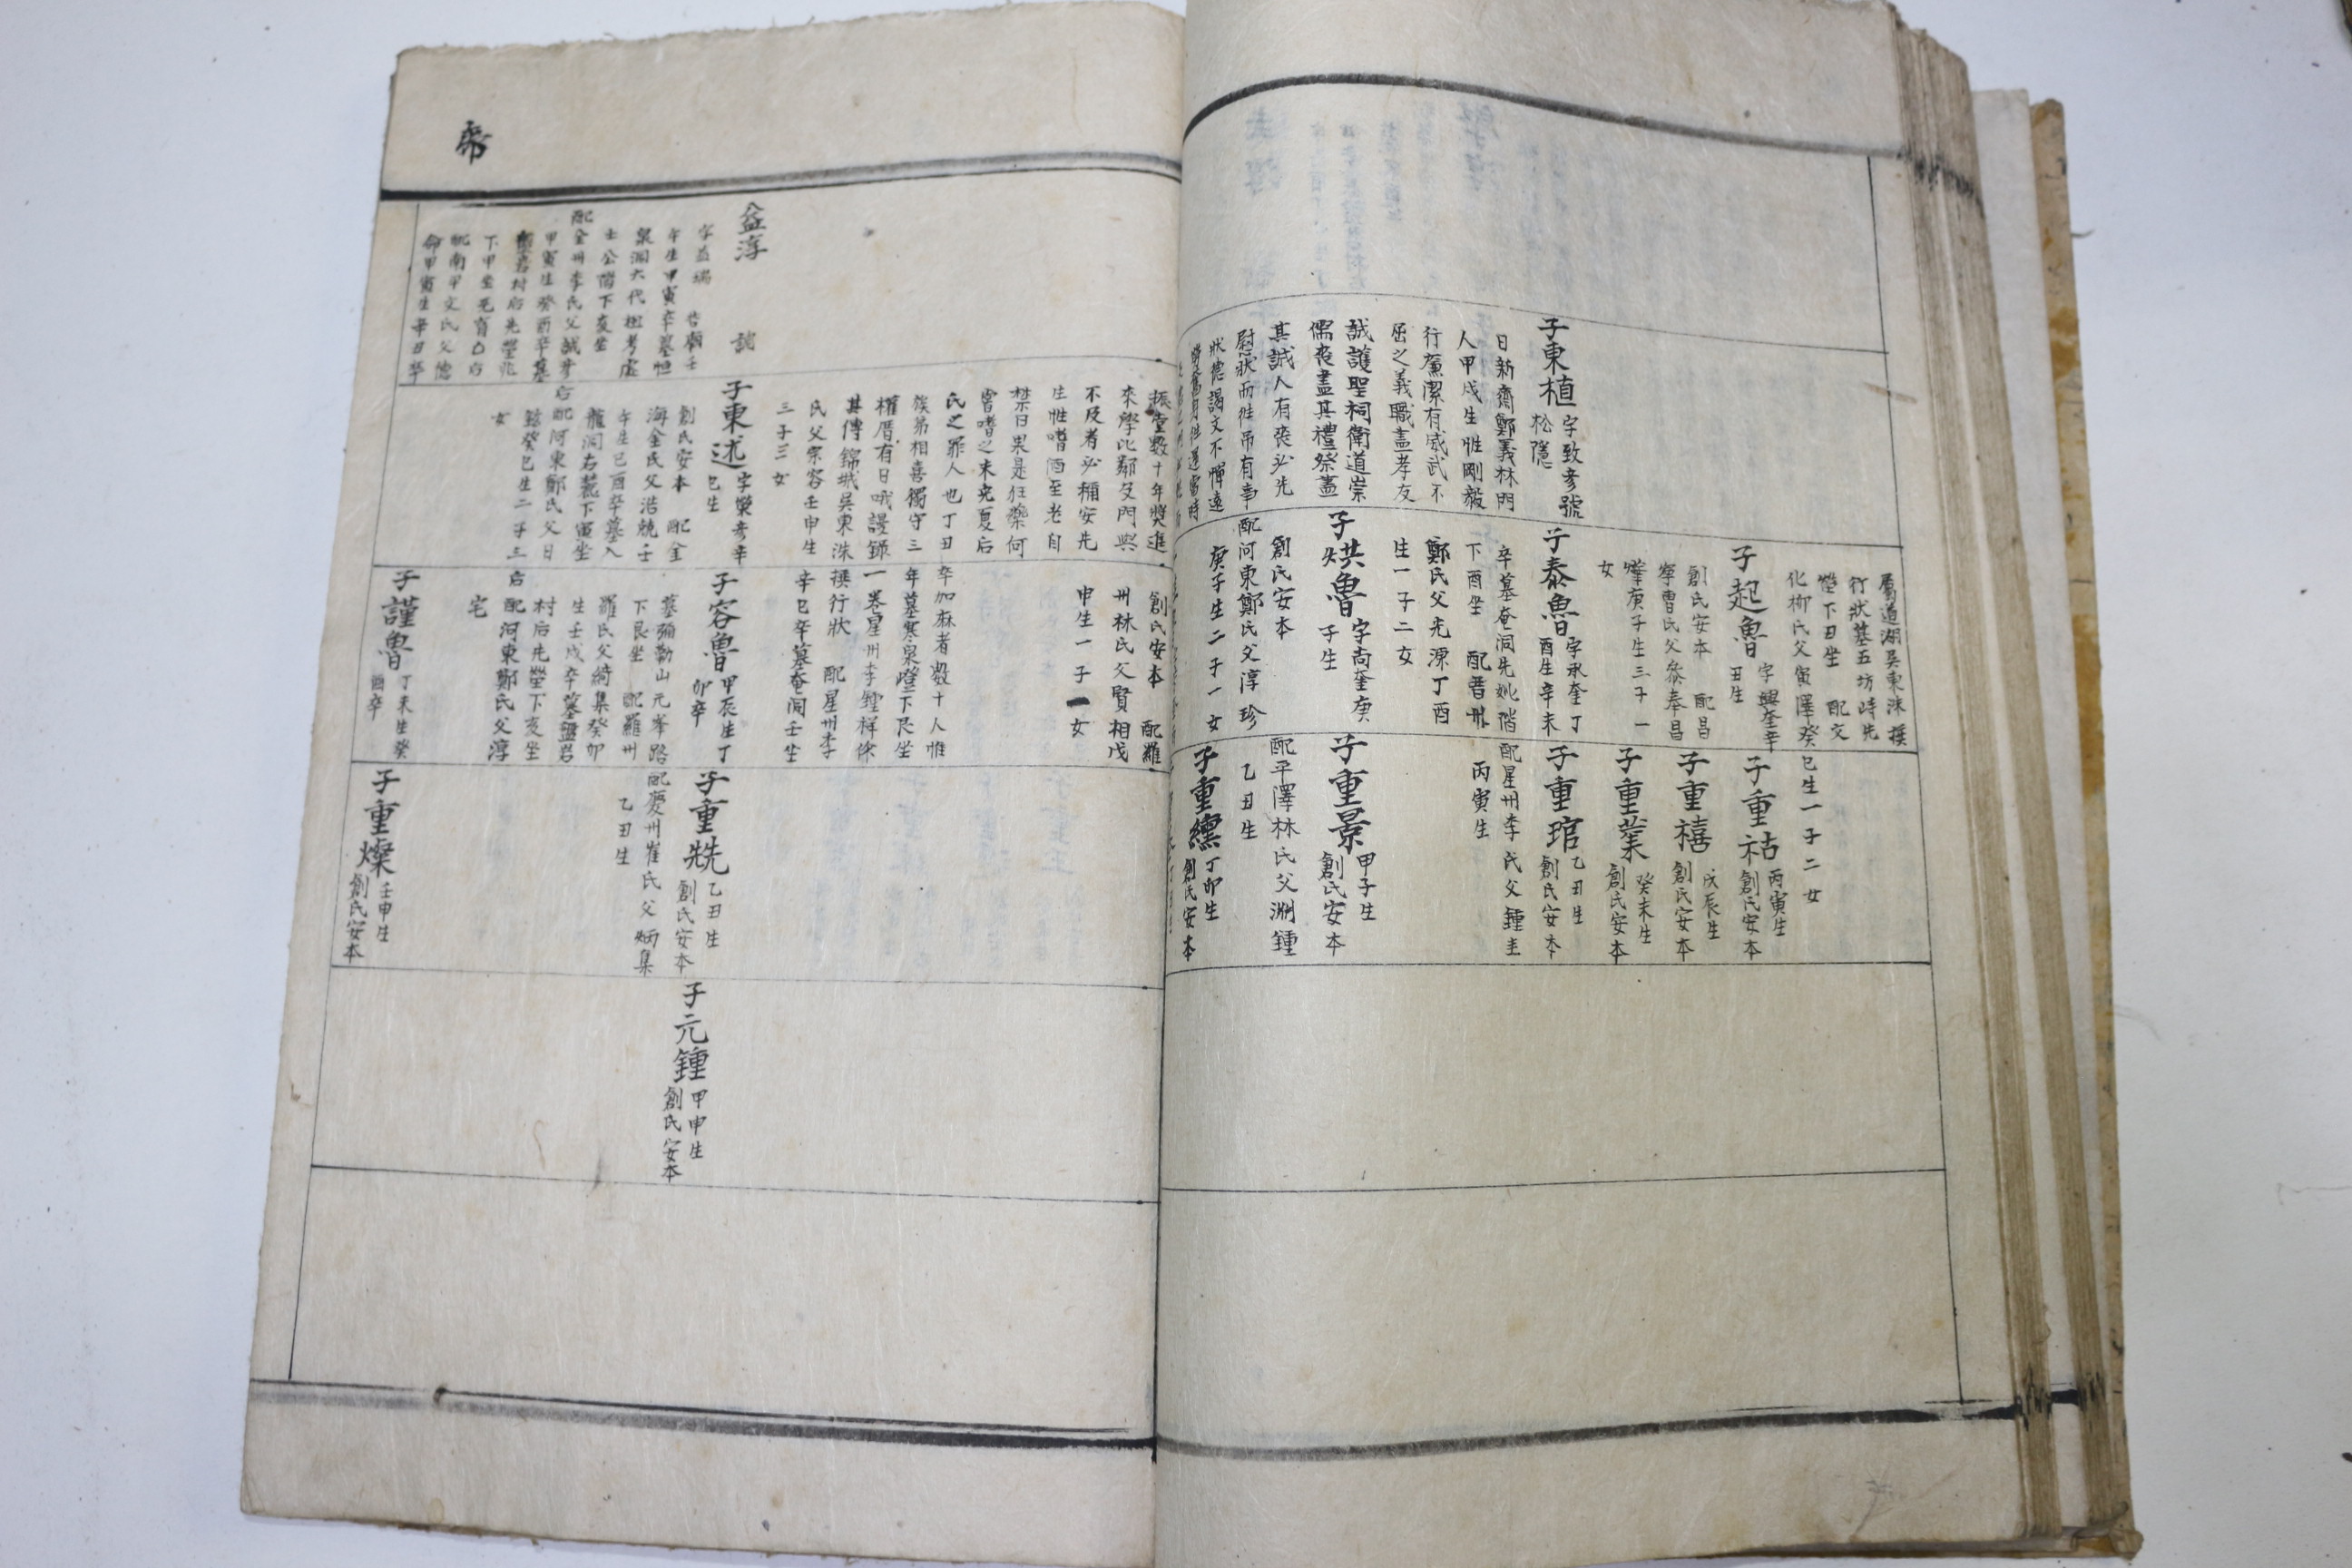 子東植
字致彦號
松隱
日新齋鄭義林門
人甲戌生性剛毅
行廉潔有威武不
屈之義職盡孝友
誠護聖祠衛道崇
儒喪盡其禮祭盡
其誠人有喪必先
慰狀而徃吊有事
狀德謁文不憚遠
屬道湖吳東洙撰
行狀墓五坊峙先
塋下丑坐 配文
化柳氏父寅澤癸
巳生一子二女
子起魯
字興奎辛
丑生
創氏安本 配昌
寧曺氏父奉昌
燁庚子生三子一
女
子泰魯
字承奎丁
酉生辛未
卒墓奄洞先妣階
下酉坐 配晋州
鄭氏父光淶丁酉
生一子二女
子烘魯
字尚奎庚
子生
創氏安本
配河東鄭氏父淳珍
庚子生二子一女
子重祜
丙寅生
創氏安本
子重禧
戊辰生
創氏安本
子重業
癸未生
創氏安本
子重琯
乙丑生
創氏安本
配星州李氏父鍾圭
丙寅生
子重景
甲子生
創氏安本
配平澤林氏父淵鍾
乙丑生
子重纁
丁卯生
創氏安本
帝
益淳
午生甲寅卒墓
泉洞六代祖考處
士公階下亥坐
配金州李氏父誠彦
甲寅生癸酉卒墓
岩村后先塋兆
下甲坐无育
配南平文氏父德
甲寅生
振童數十年奬進
來學比鄰及門與
不及者必稱安先
生性嗜酒至老自
禁曰果是狂藥何
曾嗜之未免夏后
氏之罪人也丁丑
族弟相喜獨守三
權厝有日哦謾錄
其傳錦城吳東洙
氏父宗容壬申生
三子三女
子東述
字榮彦辛
巳生
創氏安本 配金
海金氏父浩兢壬
午生己酉卒墓入
龍洞右麓下寅坐
后配河東鄭氏父日
鉉癸巳生二子三
女
創氏安本 配羅
州林氏父賢相戊
申生一子一女
卒加麻者數十人惟
年墓寒泉嶝下艮坐
一畧星州李鍾祥
撰行狀 配星州李
辛巳卒墓奄洞壬坐
子容魯
甲辰生丁
卯卒
墓彌勒山元峯路
下艮坐 配羅州
羅氏父綺集癸卯
生壬戌卒墓盤岩
村后先塋下亥坐
后配河東鄭氏父淳
宅
子謹魯
丁未生癸
酉卒
子重兟
乙丑生
創氏安本
配慶州崔氏父炳集
乙丑生
子重燦
壬申生
創氏安本
子元鍾
甲申生
創氏安本